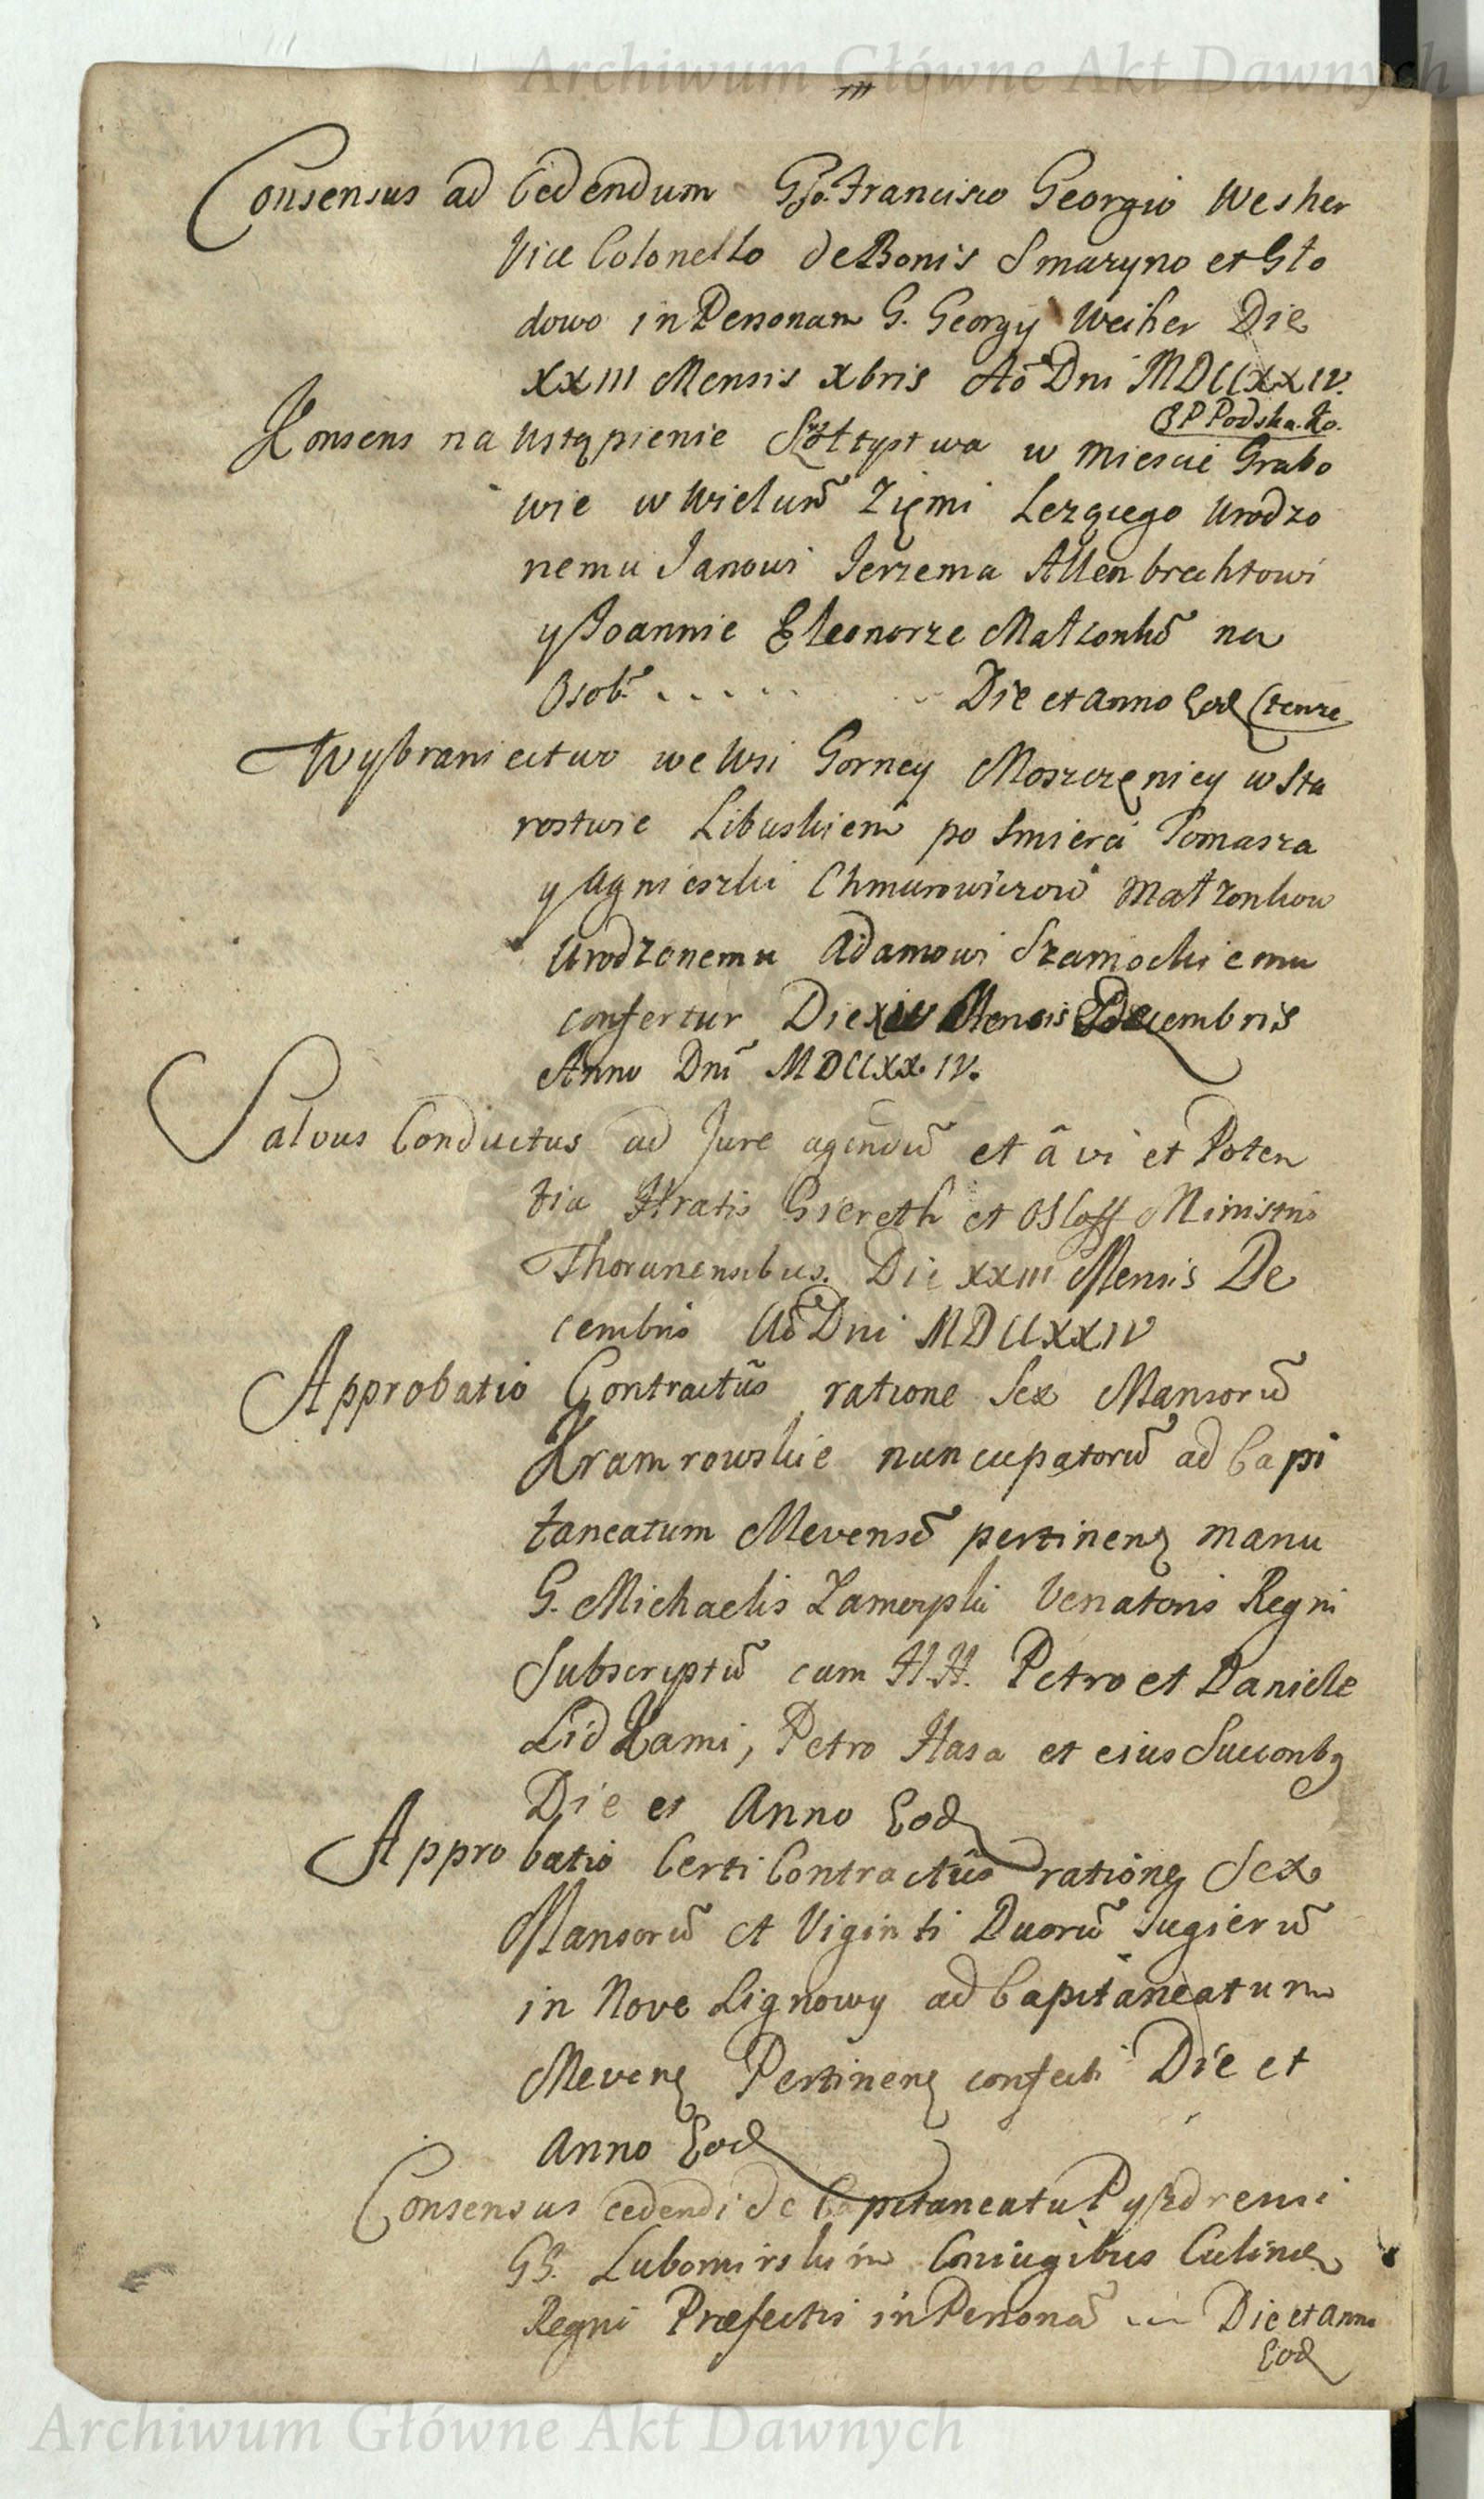 Archiwum Główne Akt Dawnych
Consensus ad Cedendum Gso. Francisco Georgio Wesher
Vice Colonello de Bonis Smazyno et Gło
dowo in Personam G. Georgy Weiher Die
XXIII Mensis Xbris Ao Dni MDCCXXIV.
Konsens na Ustąpienie Szołtystwa w miescie Grabo
wie w Wieluń Ziemi Lezącego Urodzo
nemu Janowi Jerzemu Allenbrechtowi
y Joannie Eleonorze Małzonkõ na
Osobę . . . . . Die et Anno Eod
Wybraniectwo we Wsi Gorney Moszczęnicy w Sta
rostwie Libuskiem po Smierci Tomasza
y Agnieszki Chmurowiczow Małzonkow
Urodzonemu Adamowi Szamockiemu
confertur Die Mensis Decembris
Anno Dni MDCCXX.IV.
Salvus Conductus ad Jure agendũ et â vi et Poten
tia Hratis Giereth et Osloff Ministris
Thorunensibus. Die XXIII Mensis De
cembris Ao Dni MDCCXXIV
Approbatio Contractûs ratione Sex Mansorũ
Kramrowskie nuncupatorũ ad Capi
taneatum Mevensẽ pertinen manu
G. Michaelis Zamoyski Venatoris Regni
Subscriptũ cum H.H. Petro et Daniele
Lidkami, Petro Hasa et eius Succorib9
Die et Anno Eod
Approbatio Certi Contractûs ratione Sex
Mansorũ et Viginti Duorũ Jugierũ
in Nove Lignowy ad Capitaneatum
Meven Pertinen confecti Die et
Anno Eod
Consensus cedendi de Capitaneatu Pyzdrensi
GG. Lubomirskim Coniugibus Culinæ
Regni Præfectis in Personã -- Die et Anno
Eod
Archiwum Główne Akt Dawnych